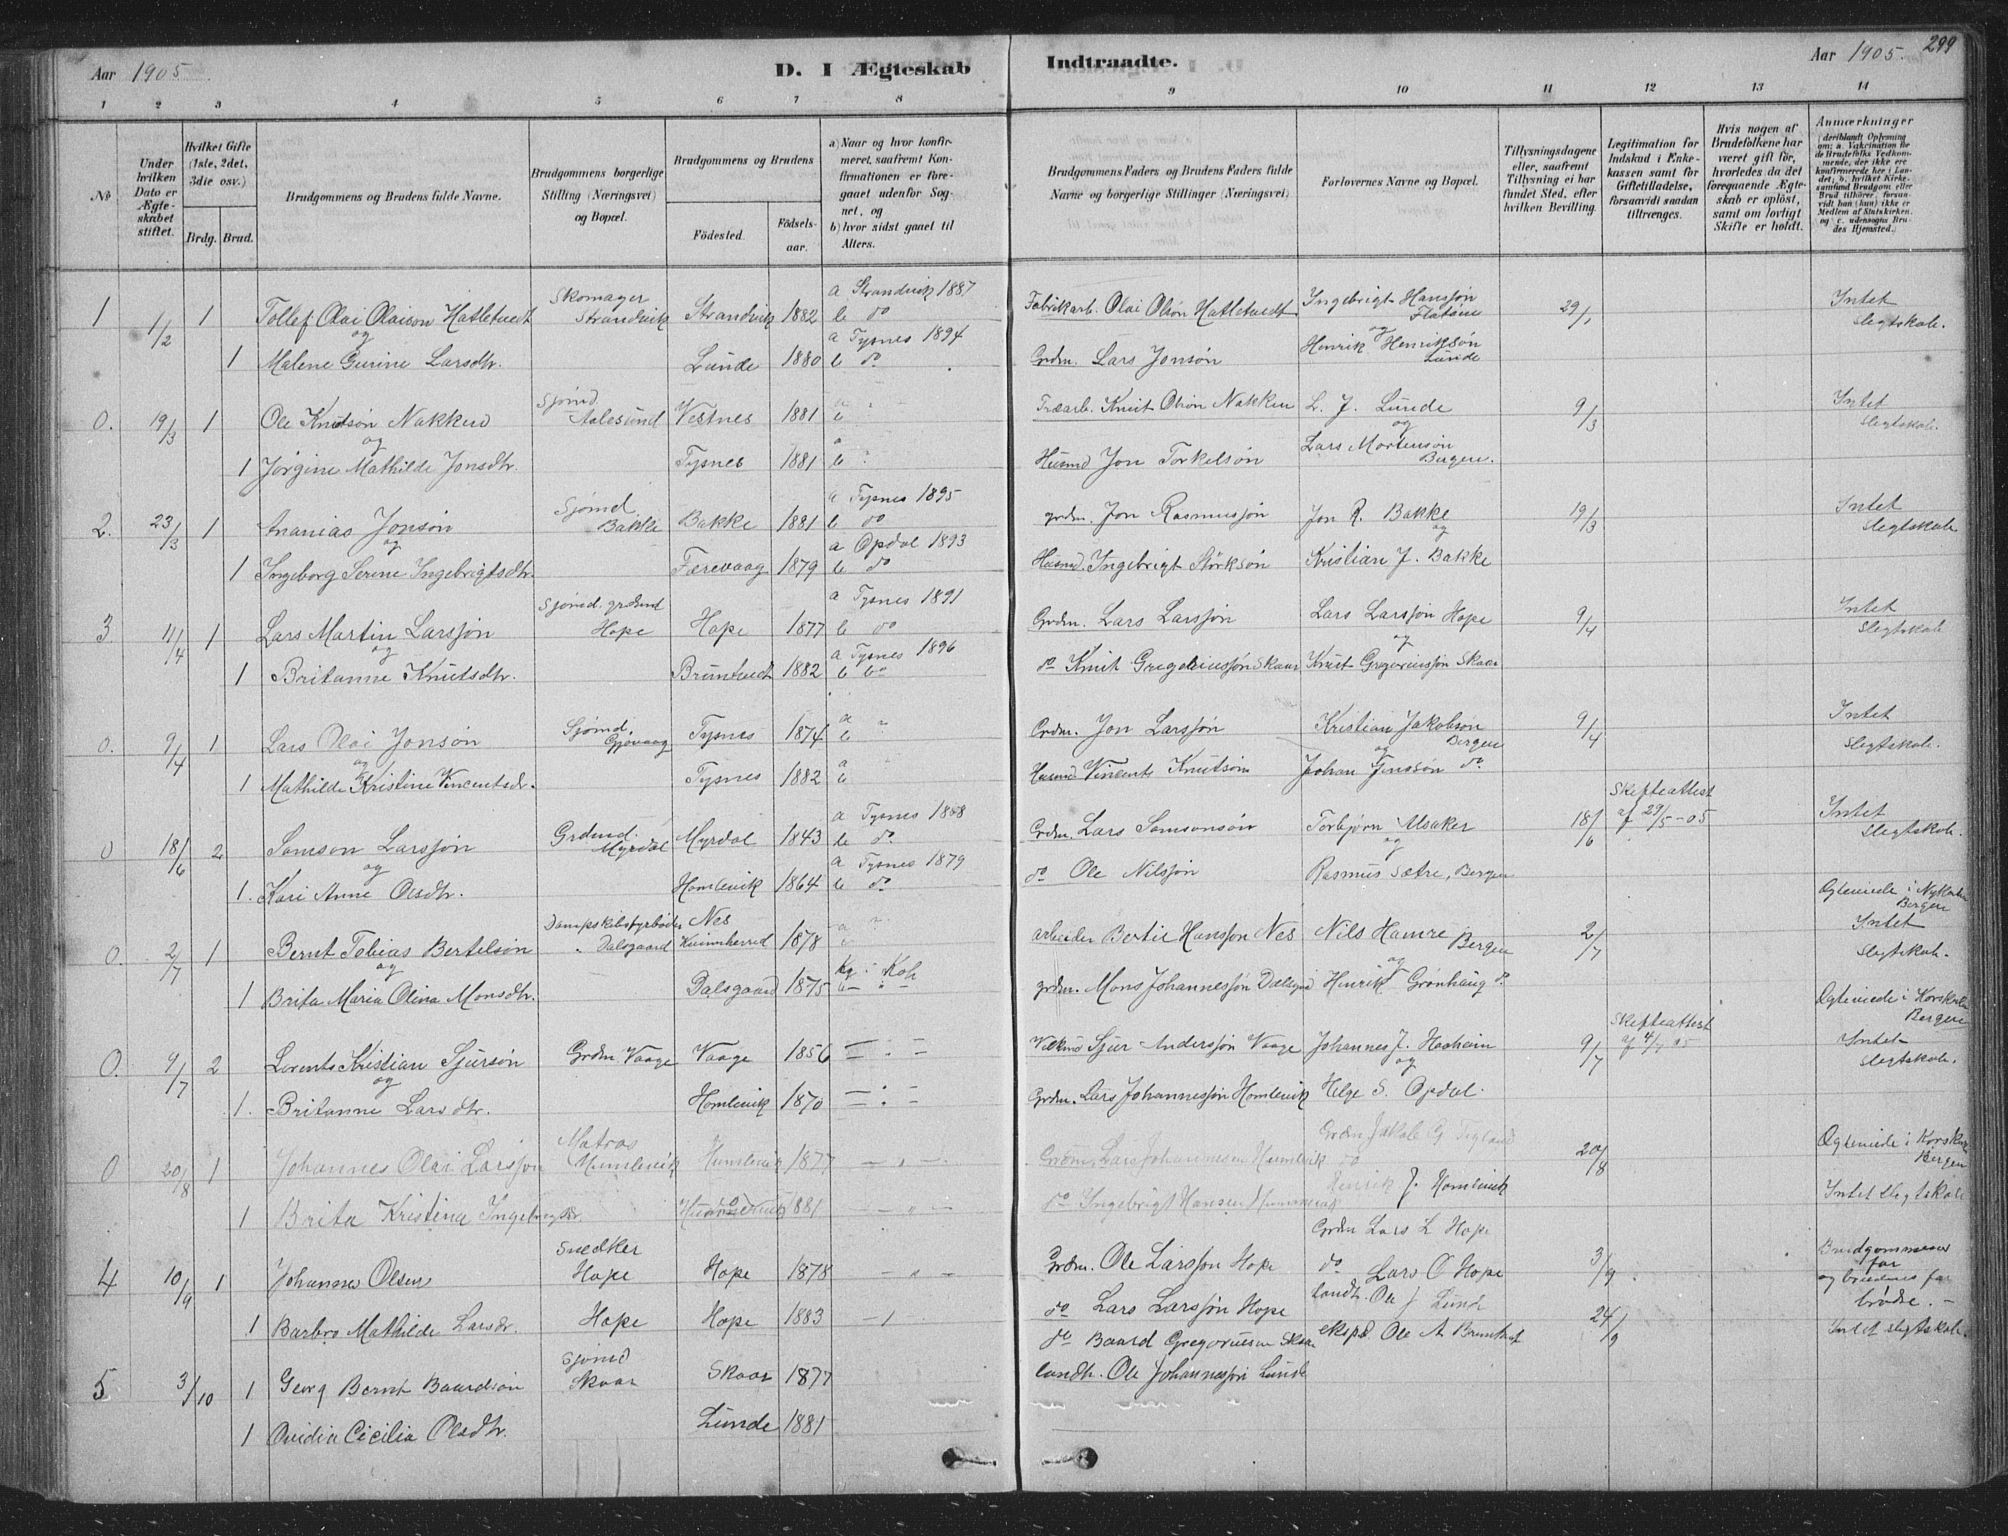 Aar 1905
D. I Ægteskab Indtraadte.
Aar 1905. 299
1 2 3 4 5 6 7 8 9 10 11 12 13 14
No
Under hvilken Dato er Ægteskabet stiftet.
Hvilket Gifte (1ste, 2det, 3die osv.)
Brdg. Brud.
Brudgommens og Brudens fulde Navne.
Brudgommens borgerlige Stilling (Næringsvei) og Bopæl.
Brudgommens og Brudens
Födested.
Födselsaar.
a) Naar og hvor konfirmeret, saafremt Konfirmationen er foregaaet udenfor Sognet, og
b) hvor sidst gaaet til Alters.
Brudgommens Faders og Brudens Faders fulde Navne og borgerlige Stillinger (Næringsvei)
Forlovernes Navne og Bopæl.
Tillysningsdagene eller, saafremt Tillysning ei har fundet Sted, efter hvilken Bevilling.
Legitimation for Indskud i Enkekassen samt for Giftetilladelse, forsaavidt saadan tiltrænges.
Hvis nogen af Brudefolkene har været gift før, hvorledes da det foregaaende Ægteskab er oplöst, samt om lovligt Skifte er holdt.
Anmærkninger
1 1/2 1 Tollef Olai Olaison Hatletvedt Skomager Strandvik Strandvik 1882 a Strandvik 1887 b do Fabrikarb. Olai Olsön Hatletvedt Ingebrigt Hansson 29/1 Intet Slegtskab.
og
1 Malene Gurine Larsdtr. Lunde 1880 a Tysnes 1894 b do Grdm. Lars Jonsøn Henrik Henriksøn Lunde
0. 19/3 1 Ole Knutsøn Nakken Sjømd. Aalesund Vestnes 1881 a b Træarb. Knut Olsøn Nakken L. J. Lunde 9/3 Intet Slegtskab.
og
1 Jørgine Mathilde Jonsdtr. Tysnes 1881 a b Husmd Jon Torkelsøn Lars Mortensøn Bergen.
2. 23/3 1 Ananias Jonsøn Sjømd. Bakke Bakke 1881 a Tysnes 1895 b do grdm. Jon Rasmussøn Jon R. Bakke 19/3 Intet Slegtskab
og
1 Ingeborg Serine Ingebrigtsdtr. Færevaag 1879 a Opdal 1893 b do Husmd. Ingebrigt Størksøn Kristian J. Bakke
3 11/4 1 Lars Martin Larssøn Sjømd. grdmd Hope Hope 1877 a Tysnes 1891 b do Grdm. Lars Larssøn Lars Larssøn Hope 9/4 Intet Slegtskab
og
1 Britanne Knutsdtr. Bruntvedt 1882 a Tysnes 1896 b do do Knut Gregoriussøn Skaar Knut Gregoriussøn Skaar
0. 9/4 1 Lars Olai Jonsøn Sjømd. Gjøvaag Tysnes 1874 a b Grdm. Jon Larssøn Kristian Jakobson Bergen 9/4 Intet Slegtskab.
og
1 Mathilde Kristine Vincentsdr. Tysnes 1882 a b Husmd Vincents Knutsøn Johan Jenssøn do
0 18/6 2 Samson Larssøn Grdmd. Myrdal Myrdal 1843 a Tysnes 1858 b do Grdm. Lars Samsonsøn Torbjørn Alsaker 18/6 Skifteattest af 29/5-05 Intet Slegtskab.
og
1. Kari Anne Olsdtr. Homlevik 1864 a Tysnes 1879 b do do Ole Nilssøn Rasmus Sætre, Bergen
0. 2/7 1 Bernt Tobias Bertelsøn Dampskibsfyrbøder Dalsgaard Nes Kvinnherred 1878 a b arbeider Bertil Hanssøn Nes Nils Hamre Bergen 2/7 Ogteviede i Nykirken Bergen Intet Slegtskab.
og
1 Brita Maria Olina Monsdtr. Dalsgaard 1875 grdm. Mons Johannessøn Dalsgrd Henrik Grønhaug do.
0. 9/7 2 Lorents Kristian Sjursøn Grdm Vaage Vaage 1856 Sjur Anderssøn Vaage Johannes J. 9/7 Skifteattest Ogteviede i Korskirken Bergen Intet Slegtskab.
og
1. Britanne Larsdtr. Homlevik 1870 Grdm. Lars Johannessøn Homlevik Helge S. Opdal.
0 20/8 1 Johannes Olai Larssøn Matros Humlevik Humlevik 1877 Grdm. Lars Johannesen Humlevik Grdm Jakob G 20/8 Ogteviede i Korskirken Bergen
1 Brita Kristina Ingebrigtsdr. 1881 do Ingebrigt Hansen Henrik J. Homlevik Intet Slegtskab
4 10/9 1 Johannes Olsen Snedker Hope Hope 1878 Grdm. Ole Larsson Hope Grdm Lars L Hope 3/9 Brudgommens far og brudens far brødre.
1 Barbro Mathilde Larsdr. Hope Hope 1883 do Lars Larssøn Hope do Lars O Hope
5 3/10 1 Georg Bernt Baardsøn Sjømd Skaar Skaar 1877 do Baard Gregoriusen Skaar landh. Ole J Lunde 24/9 Intet slegtskab.
1 Ovidia Cecilia Olsdtr. Lunde 1881 landh. Ole Johannessøn Lunde eksp. Ole A Bruntvet